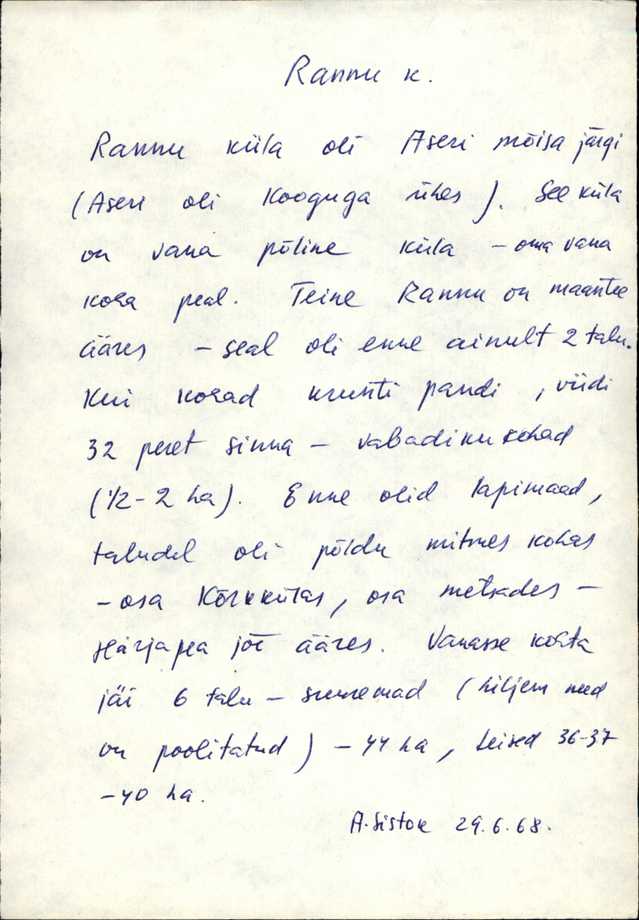 Rannu k.
Rannu küla oli Aseri mõisa järgi
(Aseri oli Kooguga ühes). See küla
on vana põline küla – oma vana
koha peal. Teine Rannu on maantee
ääres – seal oli enne ainult 2 talu.
Kui kohad krunti pandi, viidi
32 peret sinna – vabadikukohad
(1/2 – 2 ha). Enne olid lapimaad,
taludel oli põldu mitmes kohas
– osa Kõrkkülas, osa metsades –
Härjapea jõe ääres. Vanasse kohta
jäi 6 talu – suuremad (hiljem need
on poolitatud) – 44 ha, teised 36-37
– 40 ha.
29.6.68.